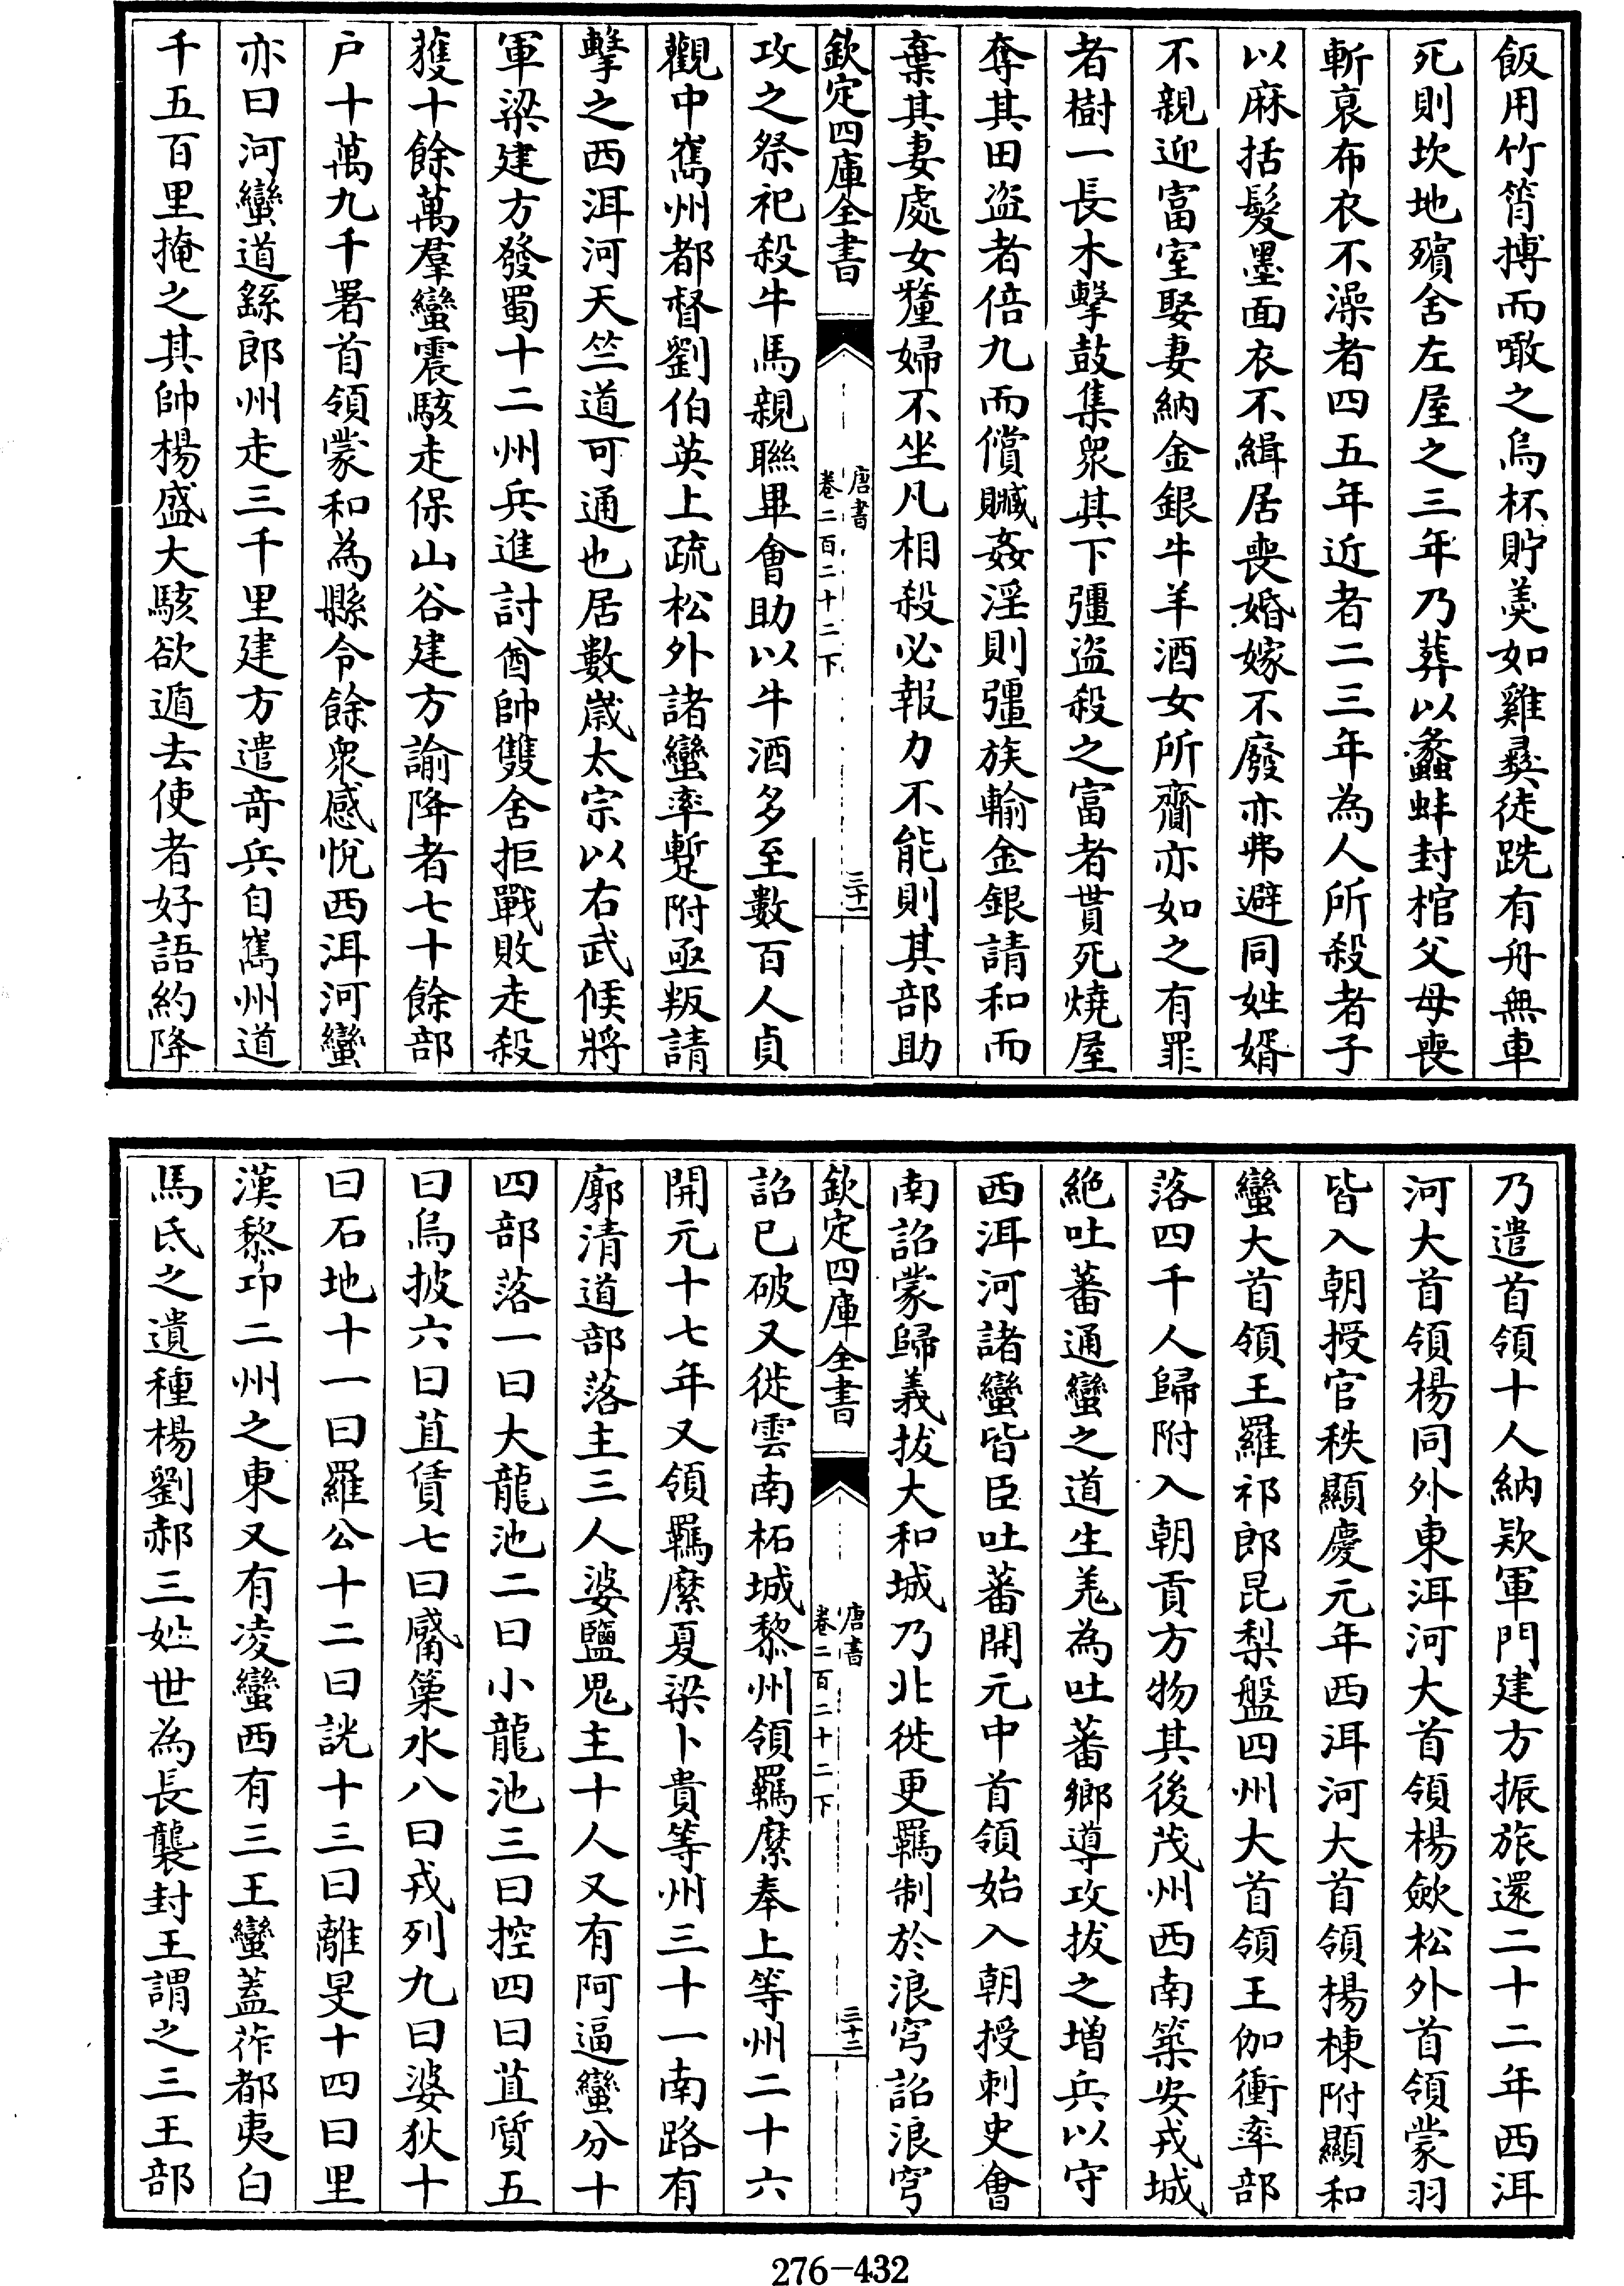 飯用竹筲搏而噉之烏杯貯羮如雞彛徒跣有舟無車
死則坎地殯舍左屋之三年乃葬以蠡蚌封棺父母喪
斬衰布衣不澡者四五年近者二三年為人所殺者子
以麻括髮墨面衣不緝居喪婚嫁不廢亦弗避同姓婿
不親迎富室娶妻納金銀牛羊酒女所齎亦如之有罪
者樹一長木擊鼓集衆其下彊盜殺之富者貰死燒屋
奪其田盜者倍九而償贓姦淫則彊族輸金銀請和而
棄其妻處女釐婦不坐凡相殺必報力不能則其部助
欽定四庫全書
唐書
卷二百二十二下
三十一
攻之祭祀殺牛馬親聯畢會助以牛酒多至數百人貞
觀中巂州都督劉伯英上疏松外諸蠻率蹔附亟叛請
擊之西洱河天竺道可通也居數歲太宗以右武候將
軍梁建方發蜀十二州兵進討酋帥雙舍拒戰敗走殺
獲十餘萬羣蠻震駭走保山谷建方諭降者七十餘部
户十萬九千署首領蒙和為縣令餘衆感悦西洱河蠻
亦曰河蠻道繇郎州走三千里建方遣竒兵自巂州道
千五百里掩之其帥楊盛大駭欲遁去使者好語約降
乃遣首領十人納欵軍門建方振旅還二十二年西洱
河大首領楊同外東洱河大首領楊斂松外首領蒙羽
皆入朝授官秩顯慶元年西洱河大首領楊棟附顯和
蠻大首領王羅祁郎昆梨盤四州大首領王伽衝率部
落四千人歸附入朝貢方物其後茂州西南築安戎城
絶吐蕃通蠻之道生羌為吐蕃鄉導攻拔之増兵以守
西洱河諸蠻皆臣吐蕃開元中首領始入朝授刺史會
南詔蒙歸義拔大和城乃北徙更羈制於浪穹詔浪穹
欽定四庫全書
唐書
卷二百二十二下
三十二
詔已破又徙雲南柘城黎州領羈縻奉上等州二十六
開元十七年又領羈縻夏梁卜貴等州三十一南路有
廓清道部落主三人婆鹽鬼主十人又有阿逼蠻分十
四部落一曰大龍池二曰小龍池三曰控四曰苴質五
曰烏披六曰苴賃七曰觱篥水八曰戎列九曰婆狄十
曰石地十一曰羅公十二曰䚸十三曰離旻十四曰里
漢黎卭二州之東又有凌蠻西有三王蠻蓋莋都夷白
馬氐之遺種楊劉郝三姓世為長襲封王謂之三王部
276-432